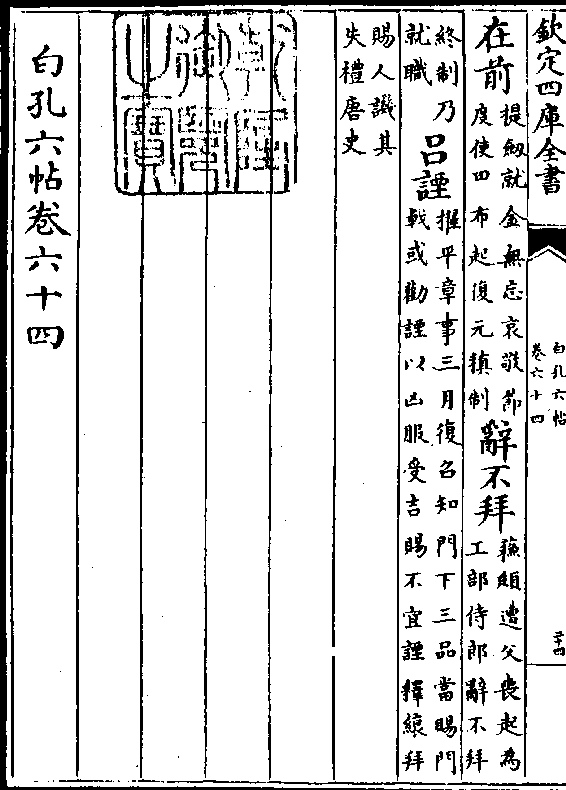 欽定四庫全書
白孔六帖
卷六十四
在前
提劔就金無忘哀敬節
度使田布起復元稹制
辭不拜
蘇頲遭父喪起為
工部侍郎辭不拜
終制乃
就職
呂諲
推平章事三月復召知門下三品當賜門
戟或勸諲以凶服受吉賜不宜諲擇縗拜
賜人譏其
失禮唐史
乾隆御覽之寶
白孔六帖卷六十四